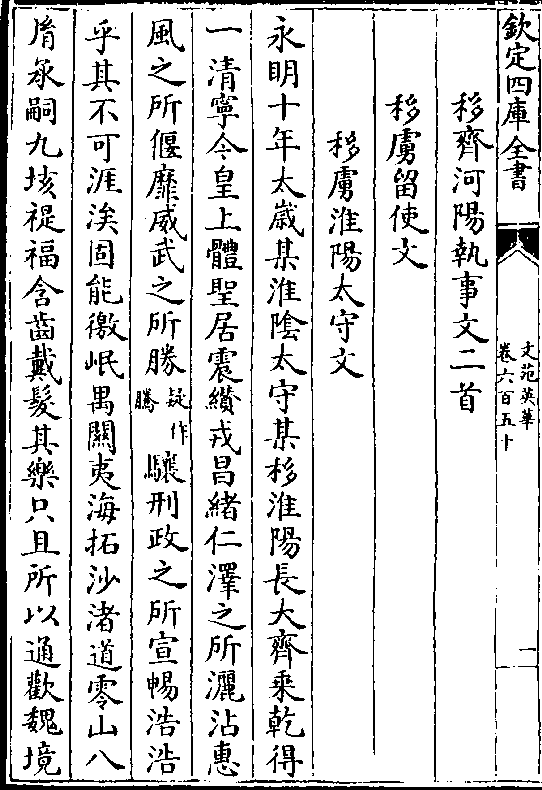 欽定四庫全書
文苑英華
卷六百五十
一
移齊河陽執事文二首
移虜留使文
移虜淮陽太守文
永明十年太歲某淮陰太守某移淮陽長大齊乗乾得
一清寧今皇上體聖居震纘戎昌緒仁澤之所灑沾惠
風之所偃靡威武之所勝疑作騰驤刑政之所宣暢浩浩
乎其不可涯涘固能徼岷禺關夷海拓沙渚道零山八
脣承嗣九垓禔福含齒戴髮其樂只且所以通歡魏境